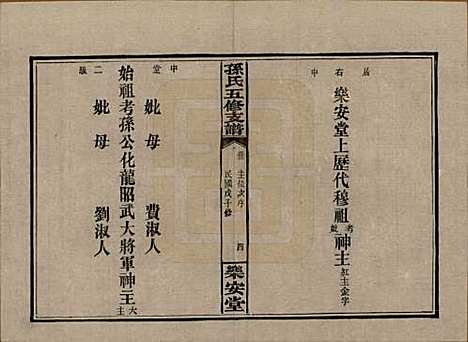 居右中
樂安堂上歷代穆祖考妣神主紅主金字
孫氏五修支譜
主位次序
四
民國戊子修
樂安堂
中堂二級
妣母 費淑人
始祖考孫公化龍昭武大將軍神主大主
妣母 劉淑人